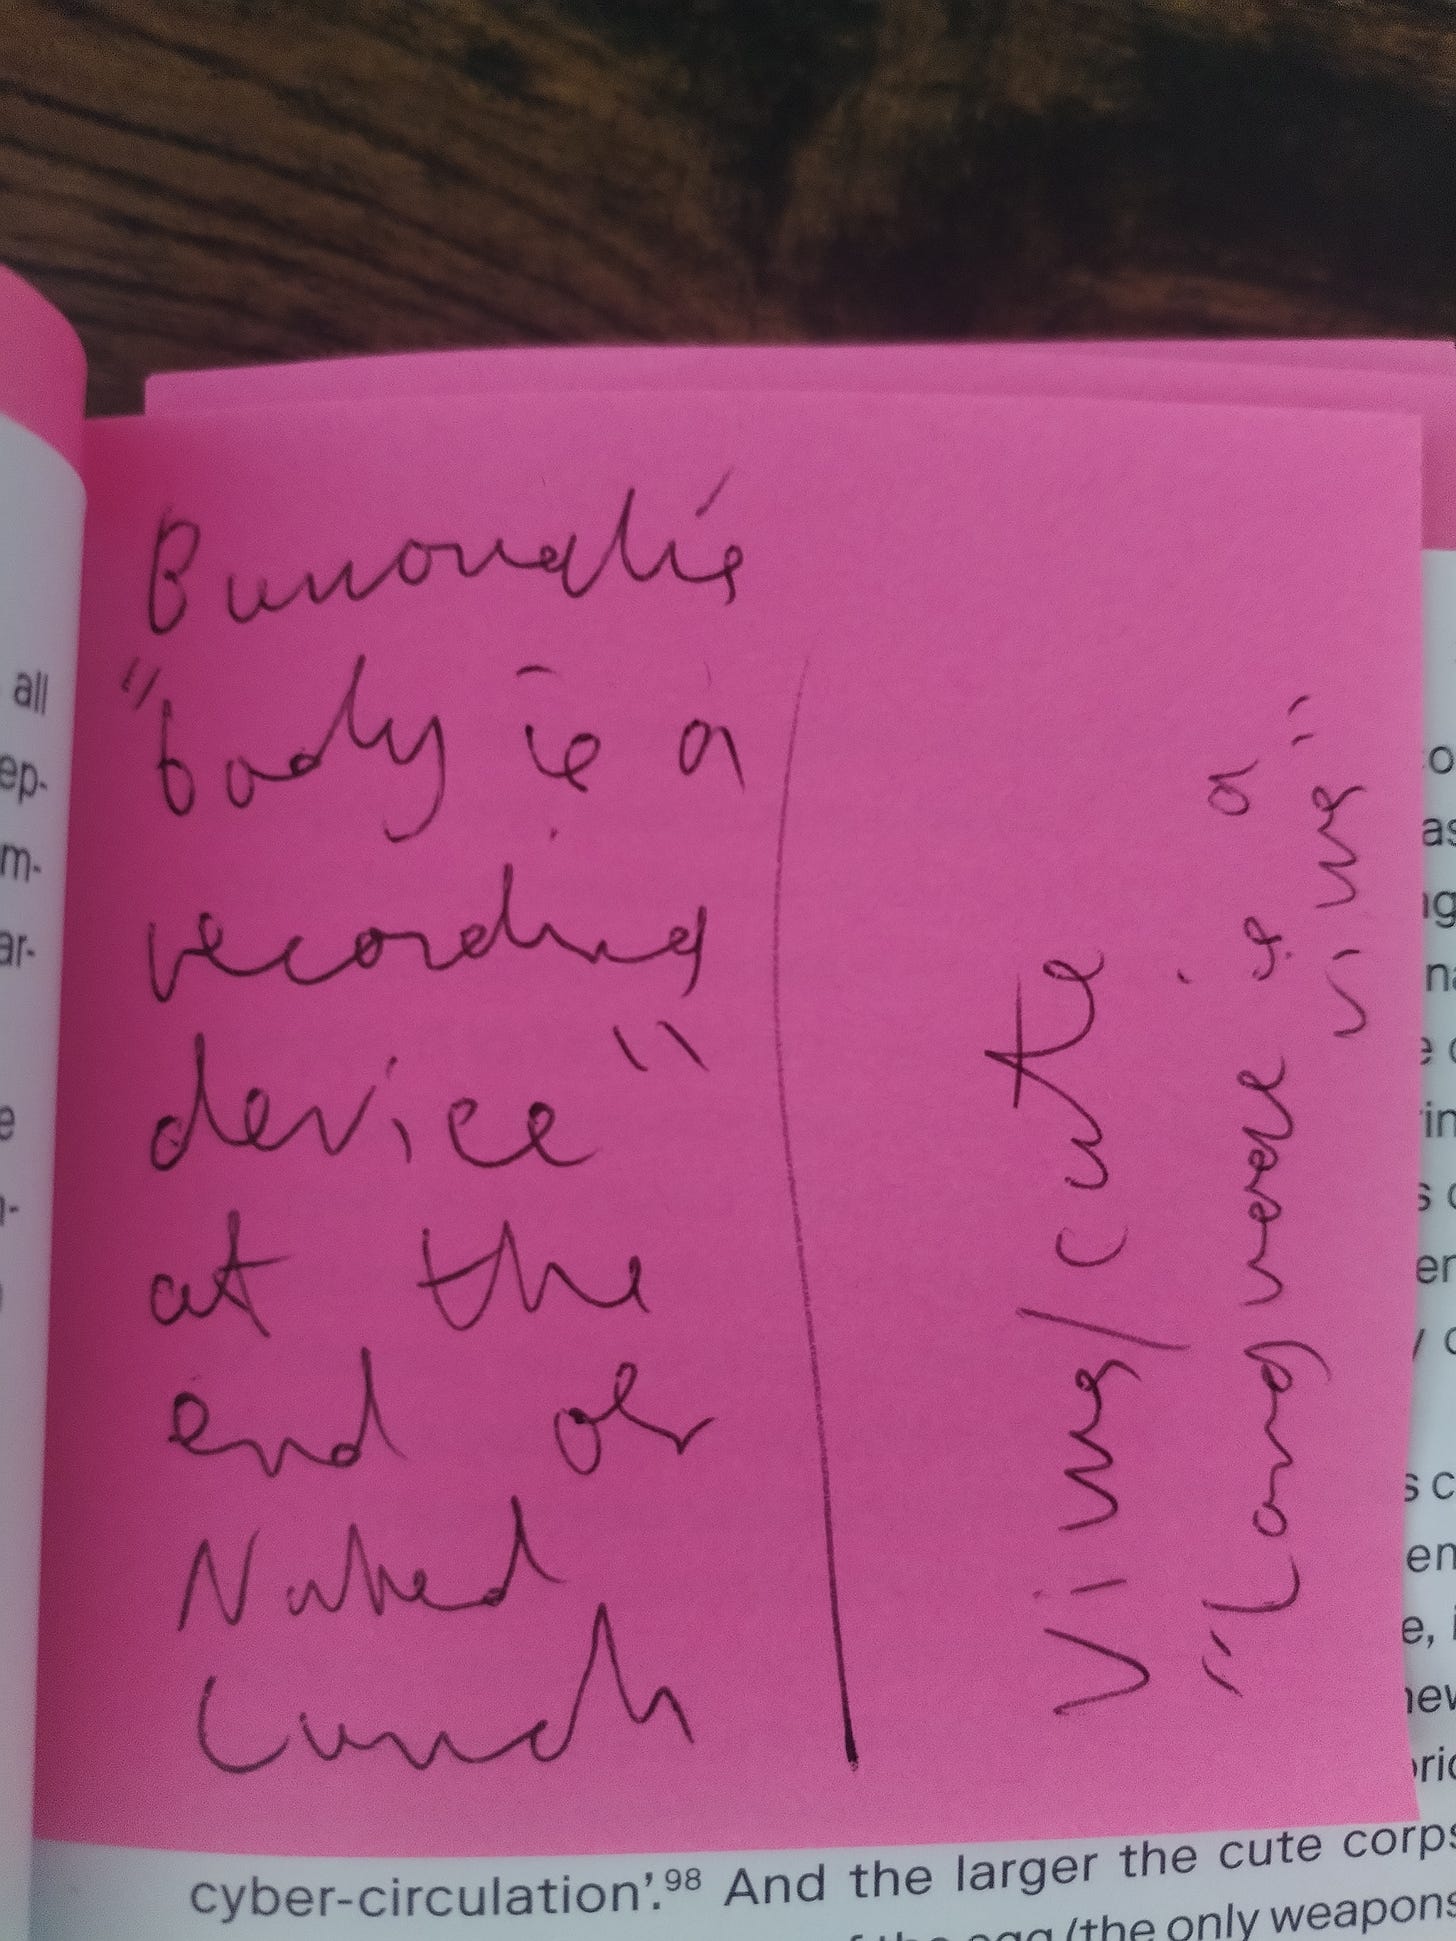 Burrough's
"body is a
recording
device"
at the
end of
Naked
Lunch
Virus/cute
"Language is a
virus"
all
ep-
m-
ar-
e
as
cyber-circulation'.98 And the larger the cute corps
egg (the only weapons